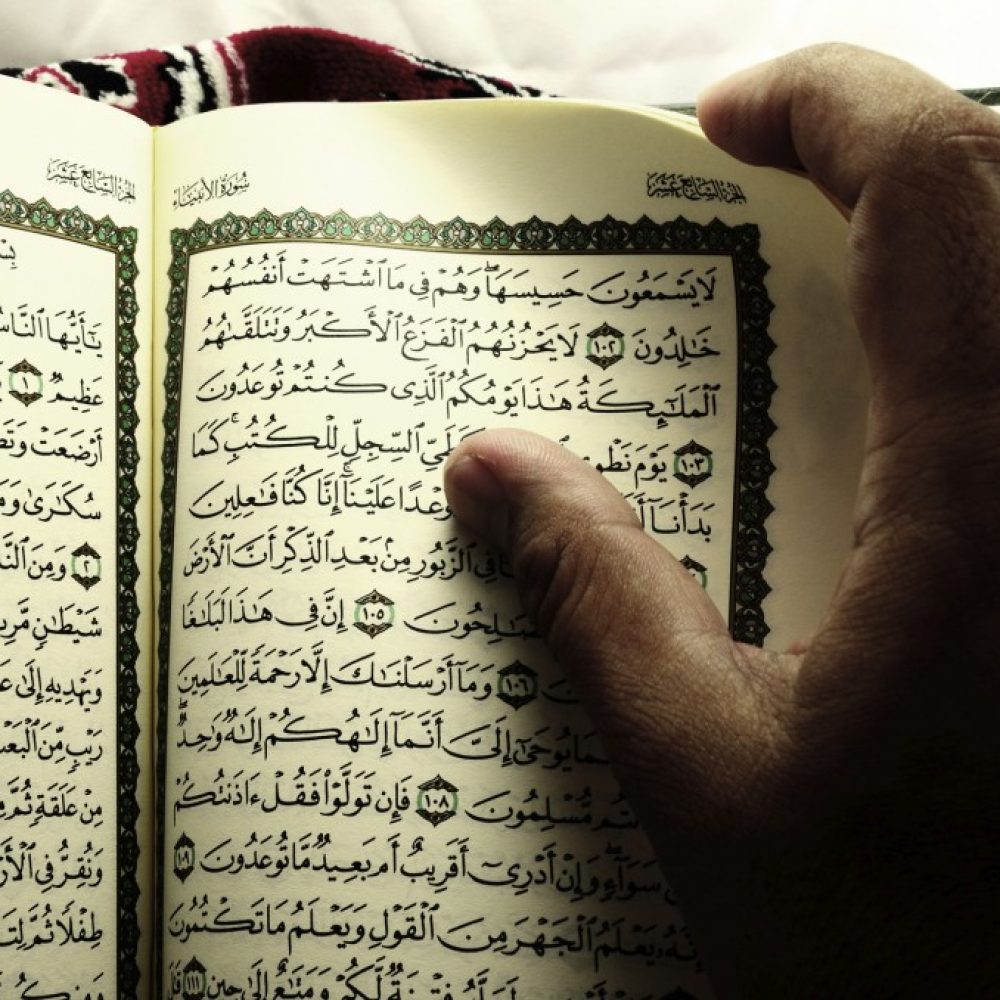 الجزء السابع عشر
سورة الأنبياء
لَا يَسْمَعُونَ حَسِيسَهَا ۖ وَهُمْ فِى مَا ٱشْتَهَتْ أَنفُسُهُمْ
خَٰلِدُونَ ١٠٢ لَا يَحْزُنُهُمُ ٱلْفَزَعُ ٱلْأَكْبَرُ وَتَتَلَقَّىٰهُمُ
ٱلْمَلَٰٓئِكَةُ هَٰذَا يَوْمُكُمُ ٱلَّذِى كُنتُمْ تُوعَدُونَ
١٠٣ يَوْمَ ٱلسِّجِلِّ لِلْكُتُبِ ۚ كَمَا
بَدَأْنَآ وَعْدًا عَلَيْنَآ ۚ إِنَّا كُنَّا فَٰعِلِينَ
فِى ٱلزَّبُورِ مِنۢ بَعْدِ ٱلذِّكْرِ أَنَّ ٱلْأَرْضَ
١٠٥ إِنَّ فِى هَٰذَا لَبَلَٰغًا
١٠٦ وَمَآ أَرْسَلْنَٰكَ إِلَّا رَحْمَةً لِّلْعَٰلَمِينَ
يُوحَىٰٓ إِلَىَّ أَنَّمَآ إِلَٰهُكُمْ إِلَٰهٌ وَٰحِدٌ ۖ
مُّسْلِمُونَ ١٠٨ فَإِن تَوَلَّوْا۟ فَقُلْ ءَاذَنتُكُمْ
سَوَآءٍ ۖ وَإِنْ أَدْرِىٓ أَقَرِيبٌ أَم بَعِيدٌ مَّا تُوعَدُونَ ١٠٩
يَعْلَمُ ٱلْجَهْرَ مِنَ ٱلْقَوْلِ وَيَعْلَمُ مَا تَكْتُمُونَ
فِتْنَةٌ لَّكُمْ وَمَتَٰعٌ إِلَىٰ حِينٍ ١١١
الجزء السابع عشر
يَٰٓأَيُّهَا ٱلنَّاسُ
عَظِيمٌ ١
أَرْضَعَتْ
سُكَٰرَىٰ
٢ وَمِنَ
شَيْطَٰنٍ
وَيَهْدِيهِ إِلَىٰ
رَيْبٍ مِّنَ
مِنْ عَلَقَةٍ ثُمَّ
وَنُقِرُّ فِى
طِفْلًا ثُمَّ